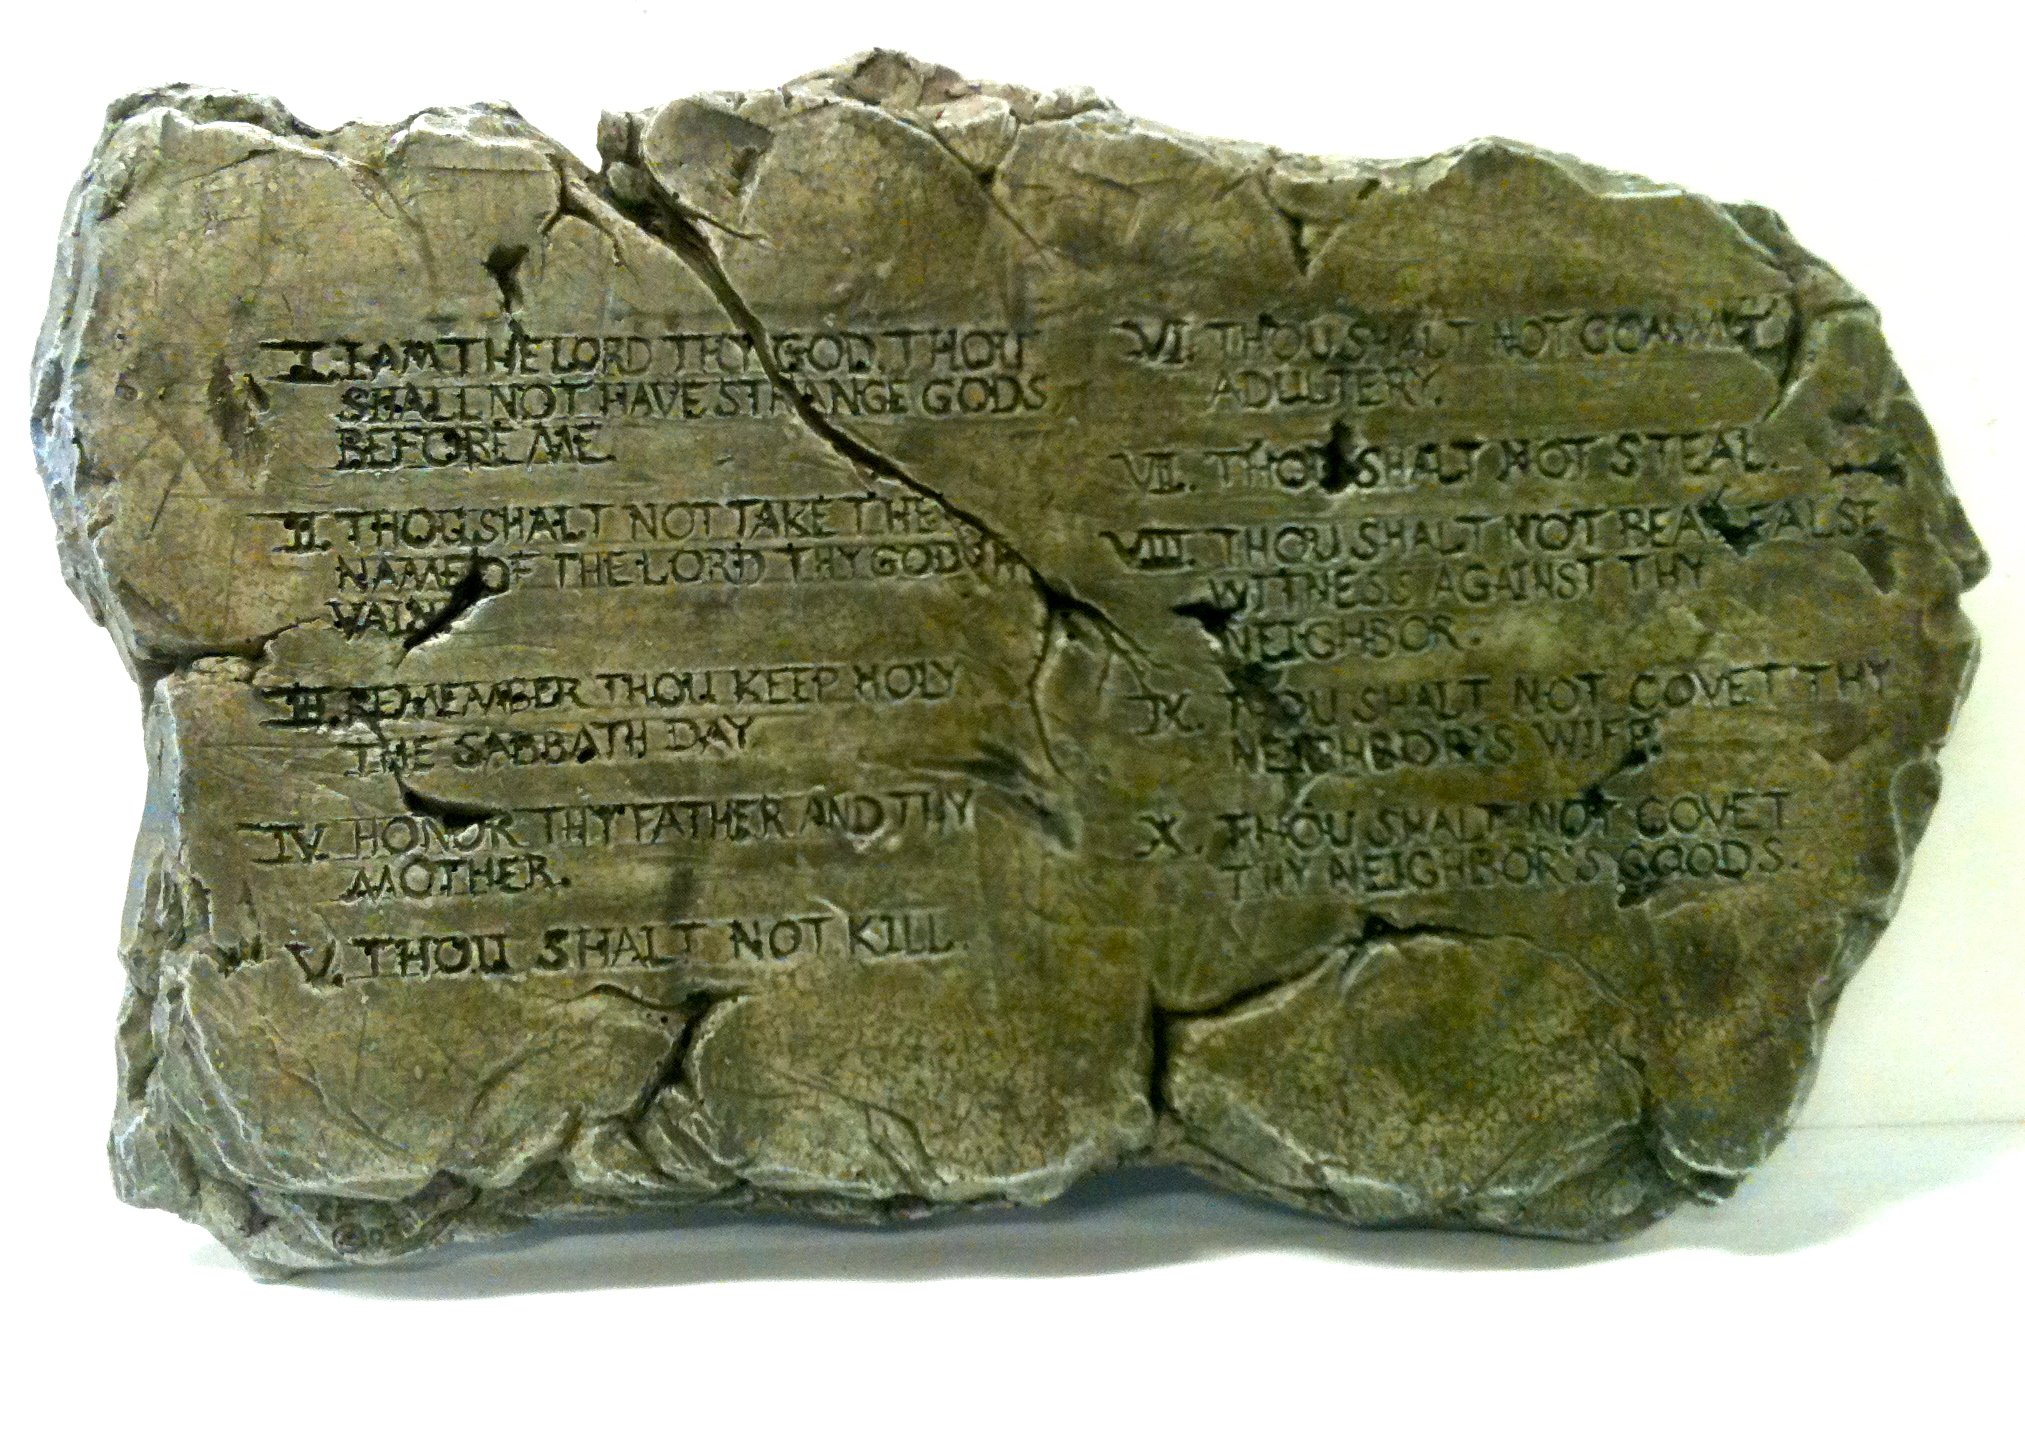 I. I AM THE LORD THY GOD. THOU
SHALL NOT HAVE STRANGE GODS
BEFORE ME.
II. THOU SHALT NOT TAKE THE
NAME OF THE LORD THY GOD IN
VAIN
III. REMEMBER THOU KEEP HOLY
THE SABBATH DAY
IV. HONOR THY FATHER AND THY
MOTHER.
V. THOU SHALT NOT KILL.
VI. THOU SHALT NOT COMMIT
ADULTERY.
VII. THOU SHALT NOT STEAL.
VIII. THOU SHALT NOT BEAR FALSE
WITNESS AGAINST THY
NEIGHBOR.
IX. THOU SHALT NOT COVET THY
NEIGHBOR'S WIFE.
X. THOU SHALT NOT COVET
THY NEIGHBOR'S GOODS.